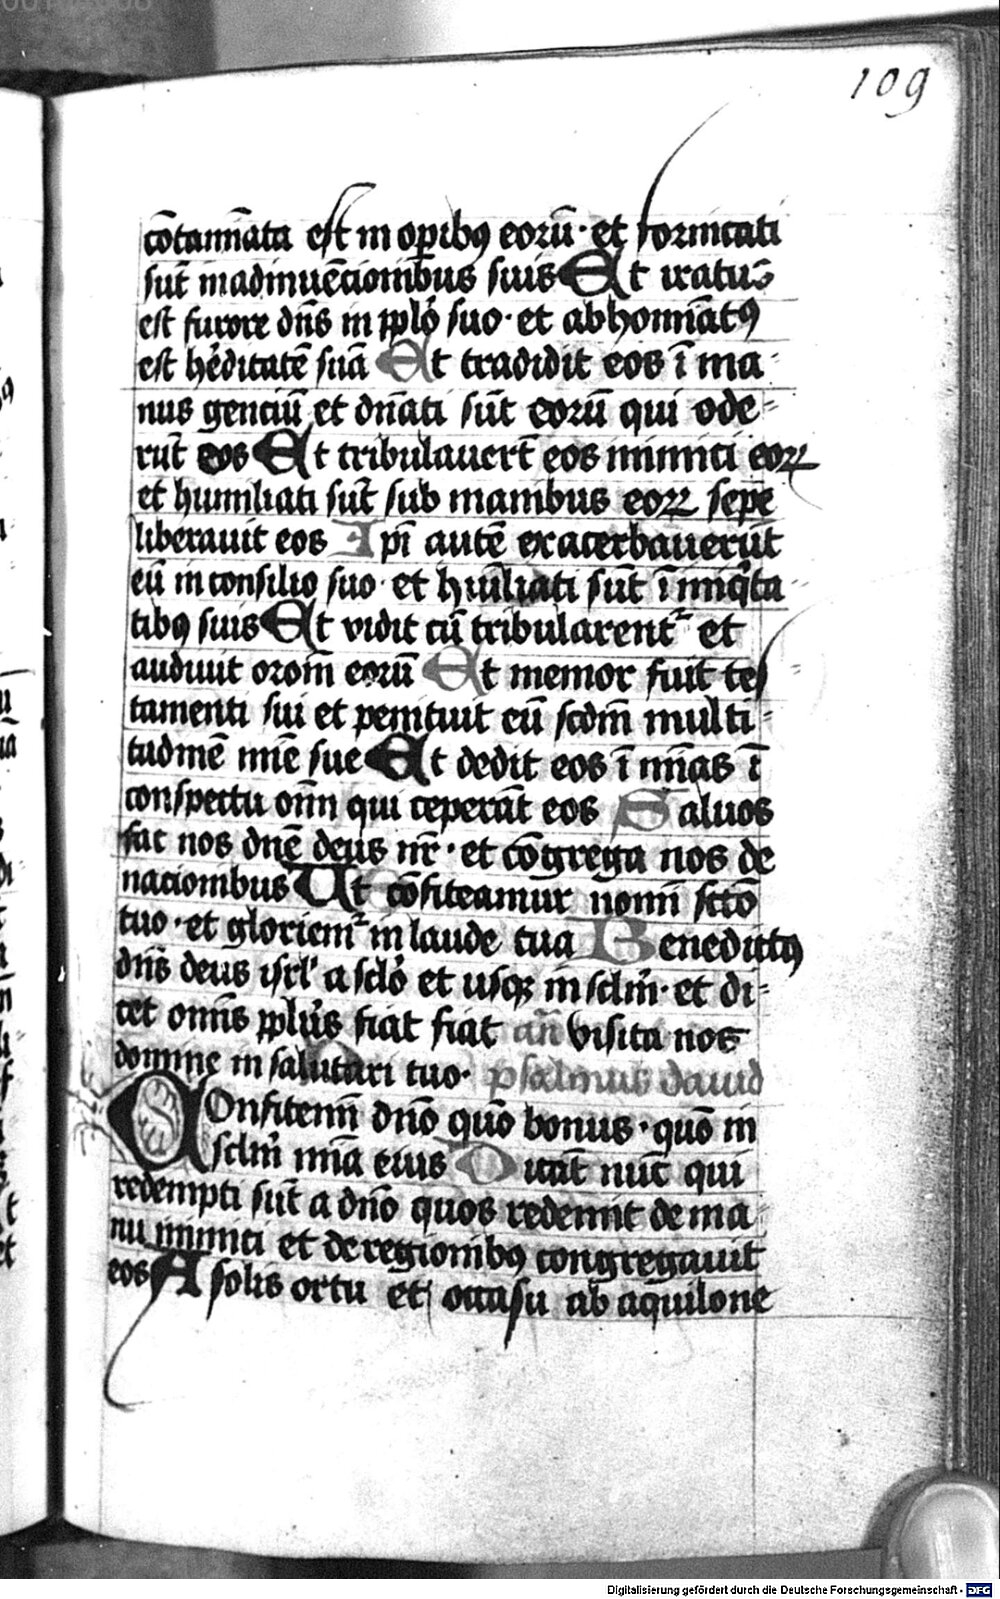 109
cōtamīata est in oꝑibꝯ eorū · et fornicati
sūt inadinuēcionibus suis Et iratus
est furore dn̄s in ppl̓o suo · et abhomīatꝯ
est h̓editatē suā Et tradidit eos ī ma-
nus genciū et dn̄ati sūt eorū qui ode-
rūt eos Et tribulauerūt eos inimici eoꝝ
et humiliati sūt sub manibus eoꝝ sepe
liberauit eos Ipī autē exacerbauerūt
eū in consilio suo · et hūiliati sūt ī iniq̓ta-
tibꝯ suis Et vidit cū tribularent᷑ et
audiuit orōm eorū Et memor fuit tes
tamenti sui et penituit eū scdm̄ multi-
tudinē mīe sue Et dedit eos ī mīas ī
conspectu om̄n qui ceperāt eos Saluos
fac nos dn̄e deus nr̄ · et cōgrega nos de
nacionibus Ut cōfiteamur nomīi sctō
tuo · et gloriem᷑ in laude tua Benedictꝯ
dn̄s deus isrl̓ a scl̓o et usqꝫ in sclm̓ · et di-
cet omīs ppl̓us fiat fiat an̄ visita nos
domine in salutari tuo · psalmus dauid
Confitemī dn̄o quō bonus · quō in
sclm̓ mīa eius Dicāt nūc qui
redempti sūt a dn̄o quos redemit de ma
nu inimici et de regionibꝯ congregauit
eos A solis ortu et occasu ab aquilone
Digitalisierung gefördert durch die Deutsche Forschungsgemeinschaft - DFG